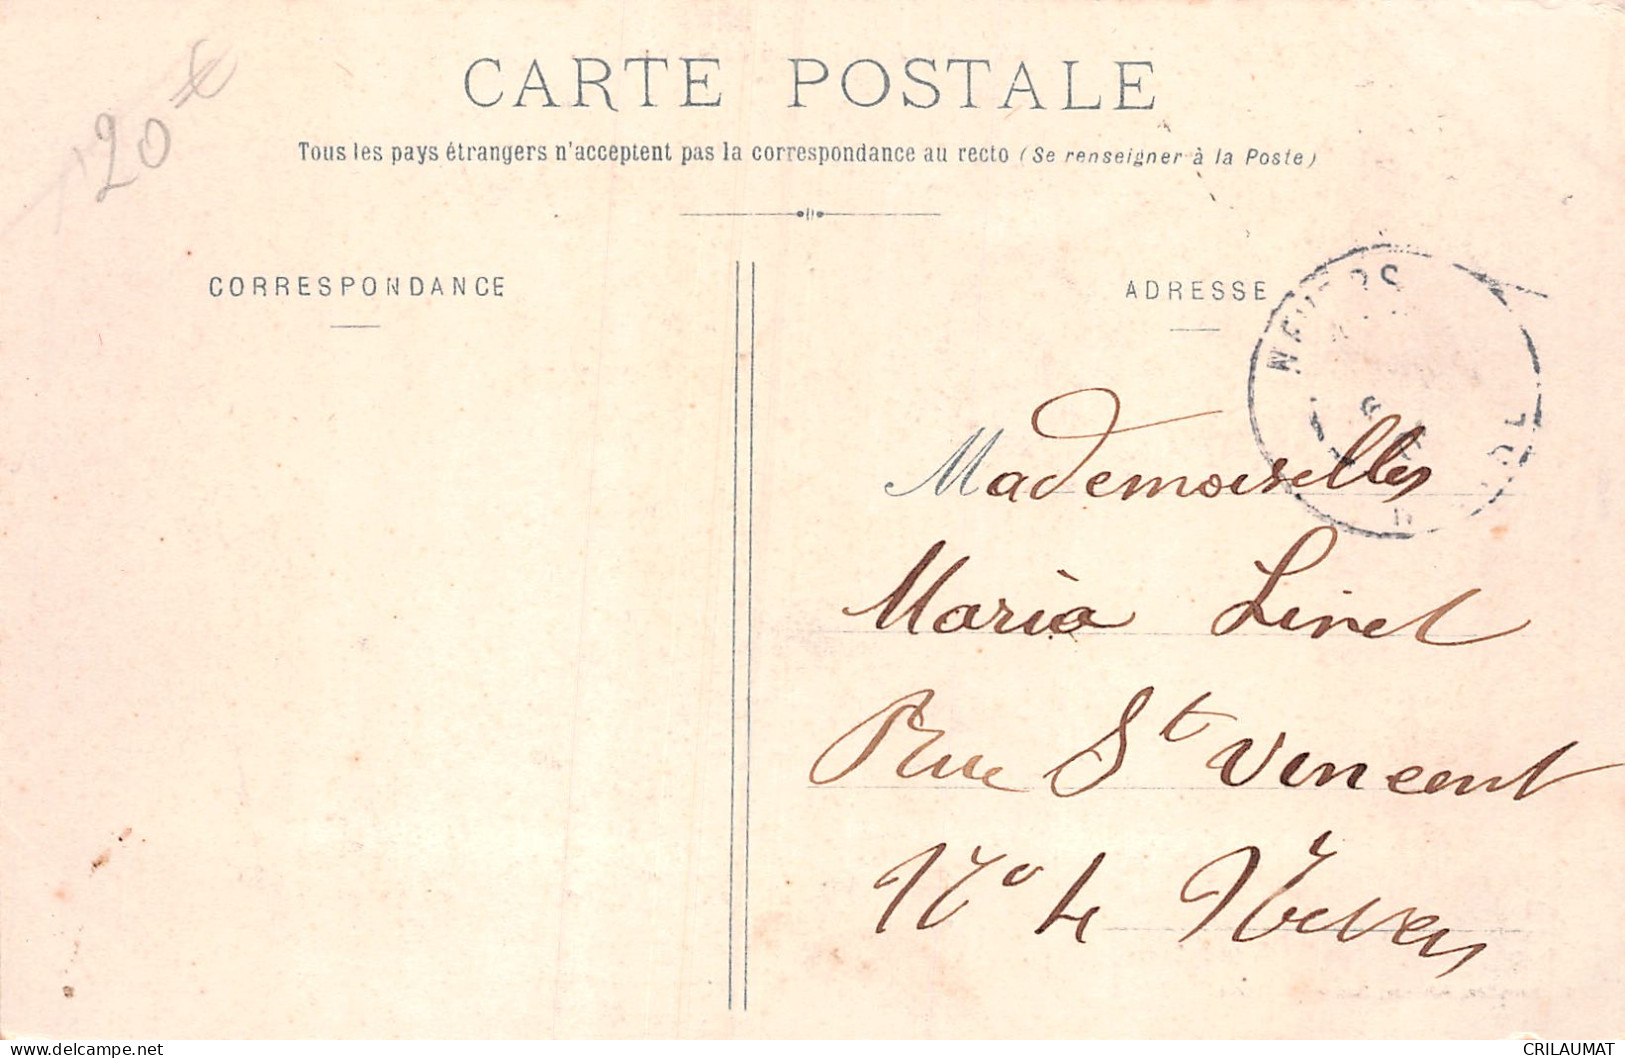 20 €
CARTE POSTALE
Tous les pays étrangers n'acceptent pas la correspondance au recto (Se renseigner à la Poste)
CORRESPONDANCE
ADRESSE
NEVERS
Mademoiselles
Maria Linet
Rue St Vincent
No 4 Nevers
delcampe.net
CRILAUMAT